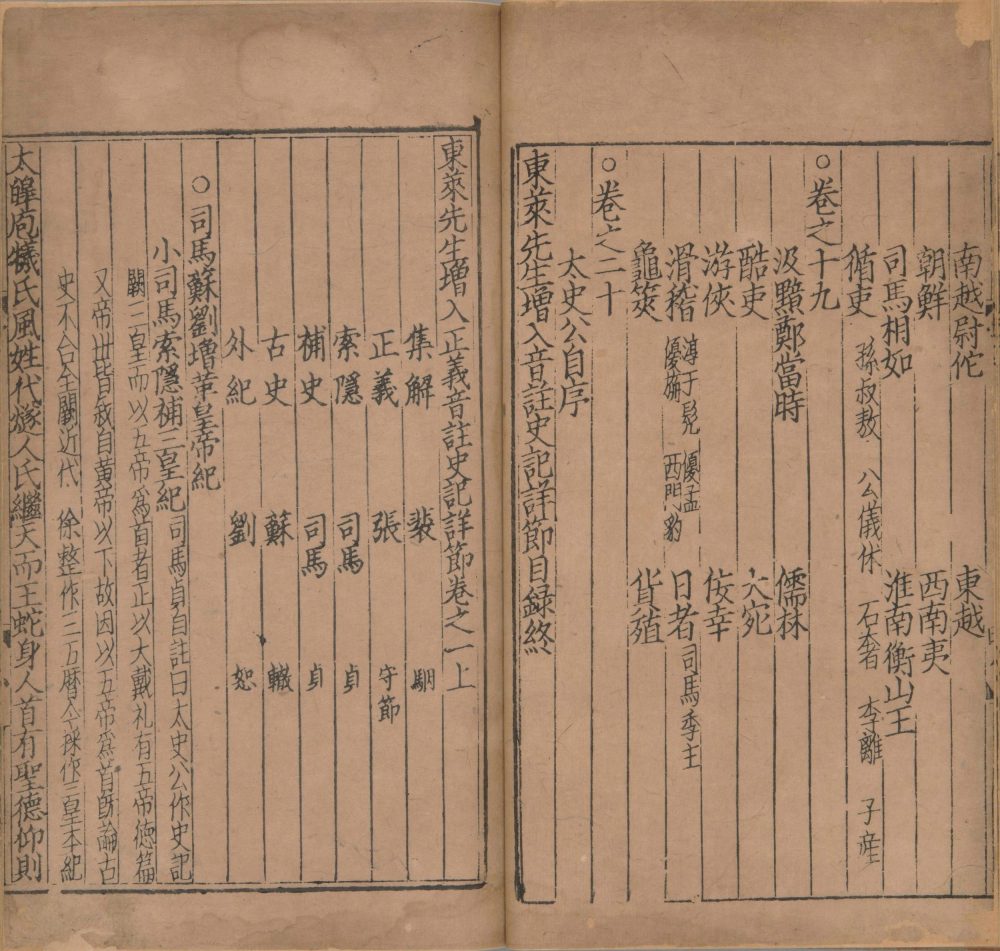 南越尉佗 東越
朝鮮 西南夷
司馬相如 淮南衡山王
循吏 孫叔敖 公儀休 石奢 李離 子産
○卷之十九
汲黯鄭當時 儒林
酷吏 大宛
游俠 佞幸
滑稽 淳于髡 優孟 優旃 西門豹 日者 司馬季主
龜筴 貨殖
○卷之二十
太史公自序
東萊先生增入音註史記詳節目録終
東萊先生增入正義音註史記詳節卷之一上
集解 裴 駰
正義 張 守節
索隱 司馬 貞
補史 司馬 貞
古史 蘇 轍
外紀 劉 恕
○司馬蘇劉增革皇帝紀
小司馬索隱補三皇紀 司馬貞自註曰太史公作史記
闕三皇而以五帝爲首者正以大戴礼有五帝德篇
又帝世皆叙自黄帝以下故因以五帝爲首旣論古
史不合全闕近代 徐整作三五曆今採作三皇本紀
太皥庖犧氏風姓代燧人氏繼天而王蛇身人首有聖德仰則